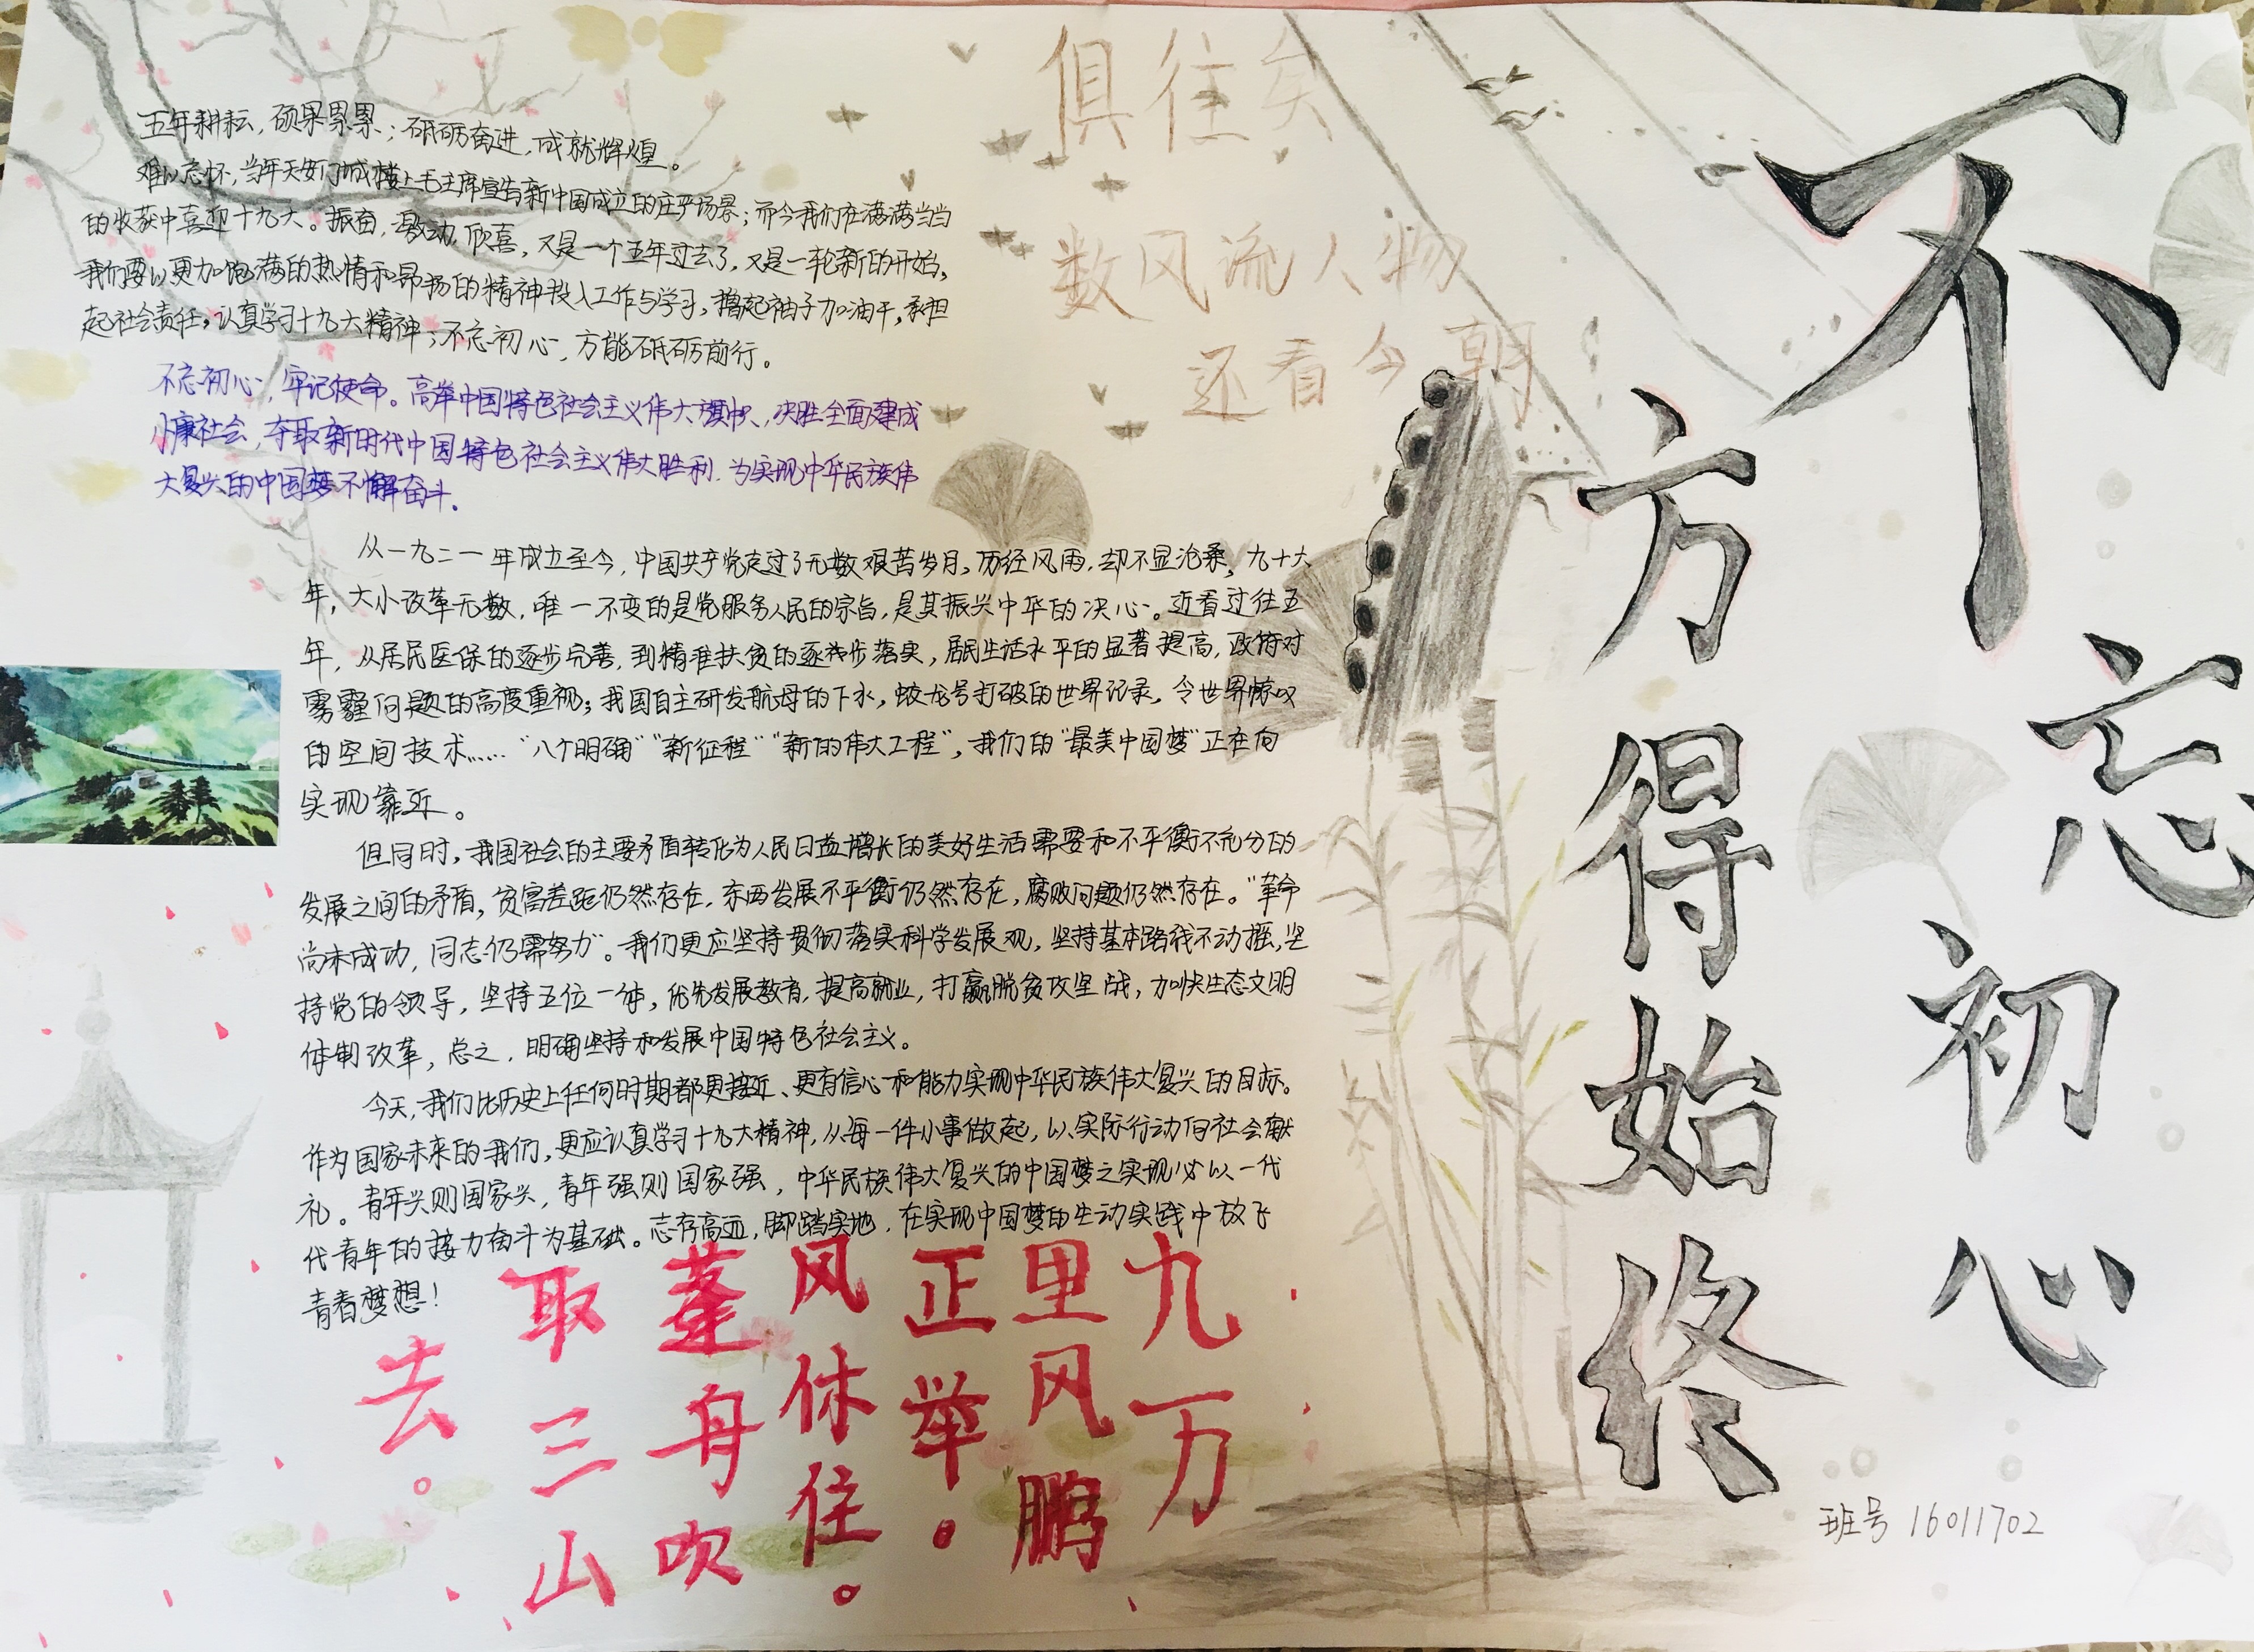 不忘初心
方得始终
俱往矣
数风流人物
还看今朝
五年耕耘,硕果累累;砥砺奋进,成就辉煌。
难以忘怀,当年天安门城楼上毛主席宣告新中国成立的庄严场景;而今我们在满满当当
的收获中喜迎十九大。振奋,激动,欣喜,又是一个五年过去了,又是一轮新的开始,
我们要以更加饱满的热情和昂扬的精神投入工作与学习,撸起袖子加油干,承担
起社会责任,认真学习十九大精神;不忘初心,方能砥砺前行。
不忘初心,牢记使命。高举中国特色社会主义伟大旗帜、决胜全面建成
小康社会,夺取新时代中国特色社会主义伟大胜利.为实现中华民族伟
大复兴的中国梦不懈奋斗.
从一九二一年成立至今,中国共产党走过了无数艰苦岁月,历经风雨,却不显沧桑,九十六
年,大小改革无数,唯一不变的是党服务人民的宗旨,是其振兴中华的决心。近看过往五
年,从居民医保的逐步完善,到精准扶贫的逐步落实,居民生活水平的显著提高,政府对
雾霾问题的高度重视;我国自主研发航母的下水,蛟龙号打破的世界记录,令世界惊叹
的空间技术……“八个明确”“新征程”“新的伟大工程”,我们的“最美中国梦”正在向
实现靠近。
但同时,我国社会的主要矛盾转化为人民日益增长的美好生活需要和不平衡不充分的
发展之间的矛盾,贫富差距仍然存在,东西发展不平衡仍然存在,腐败问题仍然存在。“革命
尚未成功,同志仍需努力”。我们更应坚持贯彻落实科学发展观,坚持基本路线不动摇,坚
持党的领导,坚持五位一体,优先发展教育,提高就业,打赢脱贫攻坚战,加快生态文明
体制改革,总之,明确坚持和发展中国特色社会主义。
今天,我们比历史上任何时期都更接近、更有信心和能力实现中华民族伟大复兴的目标。
作为国家未来的我们,更应认真学习十九大精神,从每一件小事做起,以实际行动向社会献
礼。青年兴则国家兴,青年强则国家强,中华民族伟大复兴的中国梦之实现必以一代
代青年的接力奋斗为基础。志存高远,脚踏实地,在实现中国梦的生动实践中放飞
青春梦想!
九万
里风鹏
正举。
风休住。
蓬舟吹
取三山
去。
班号 16011702